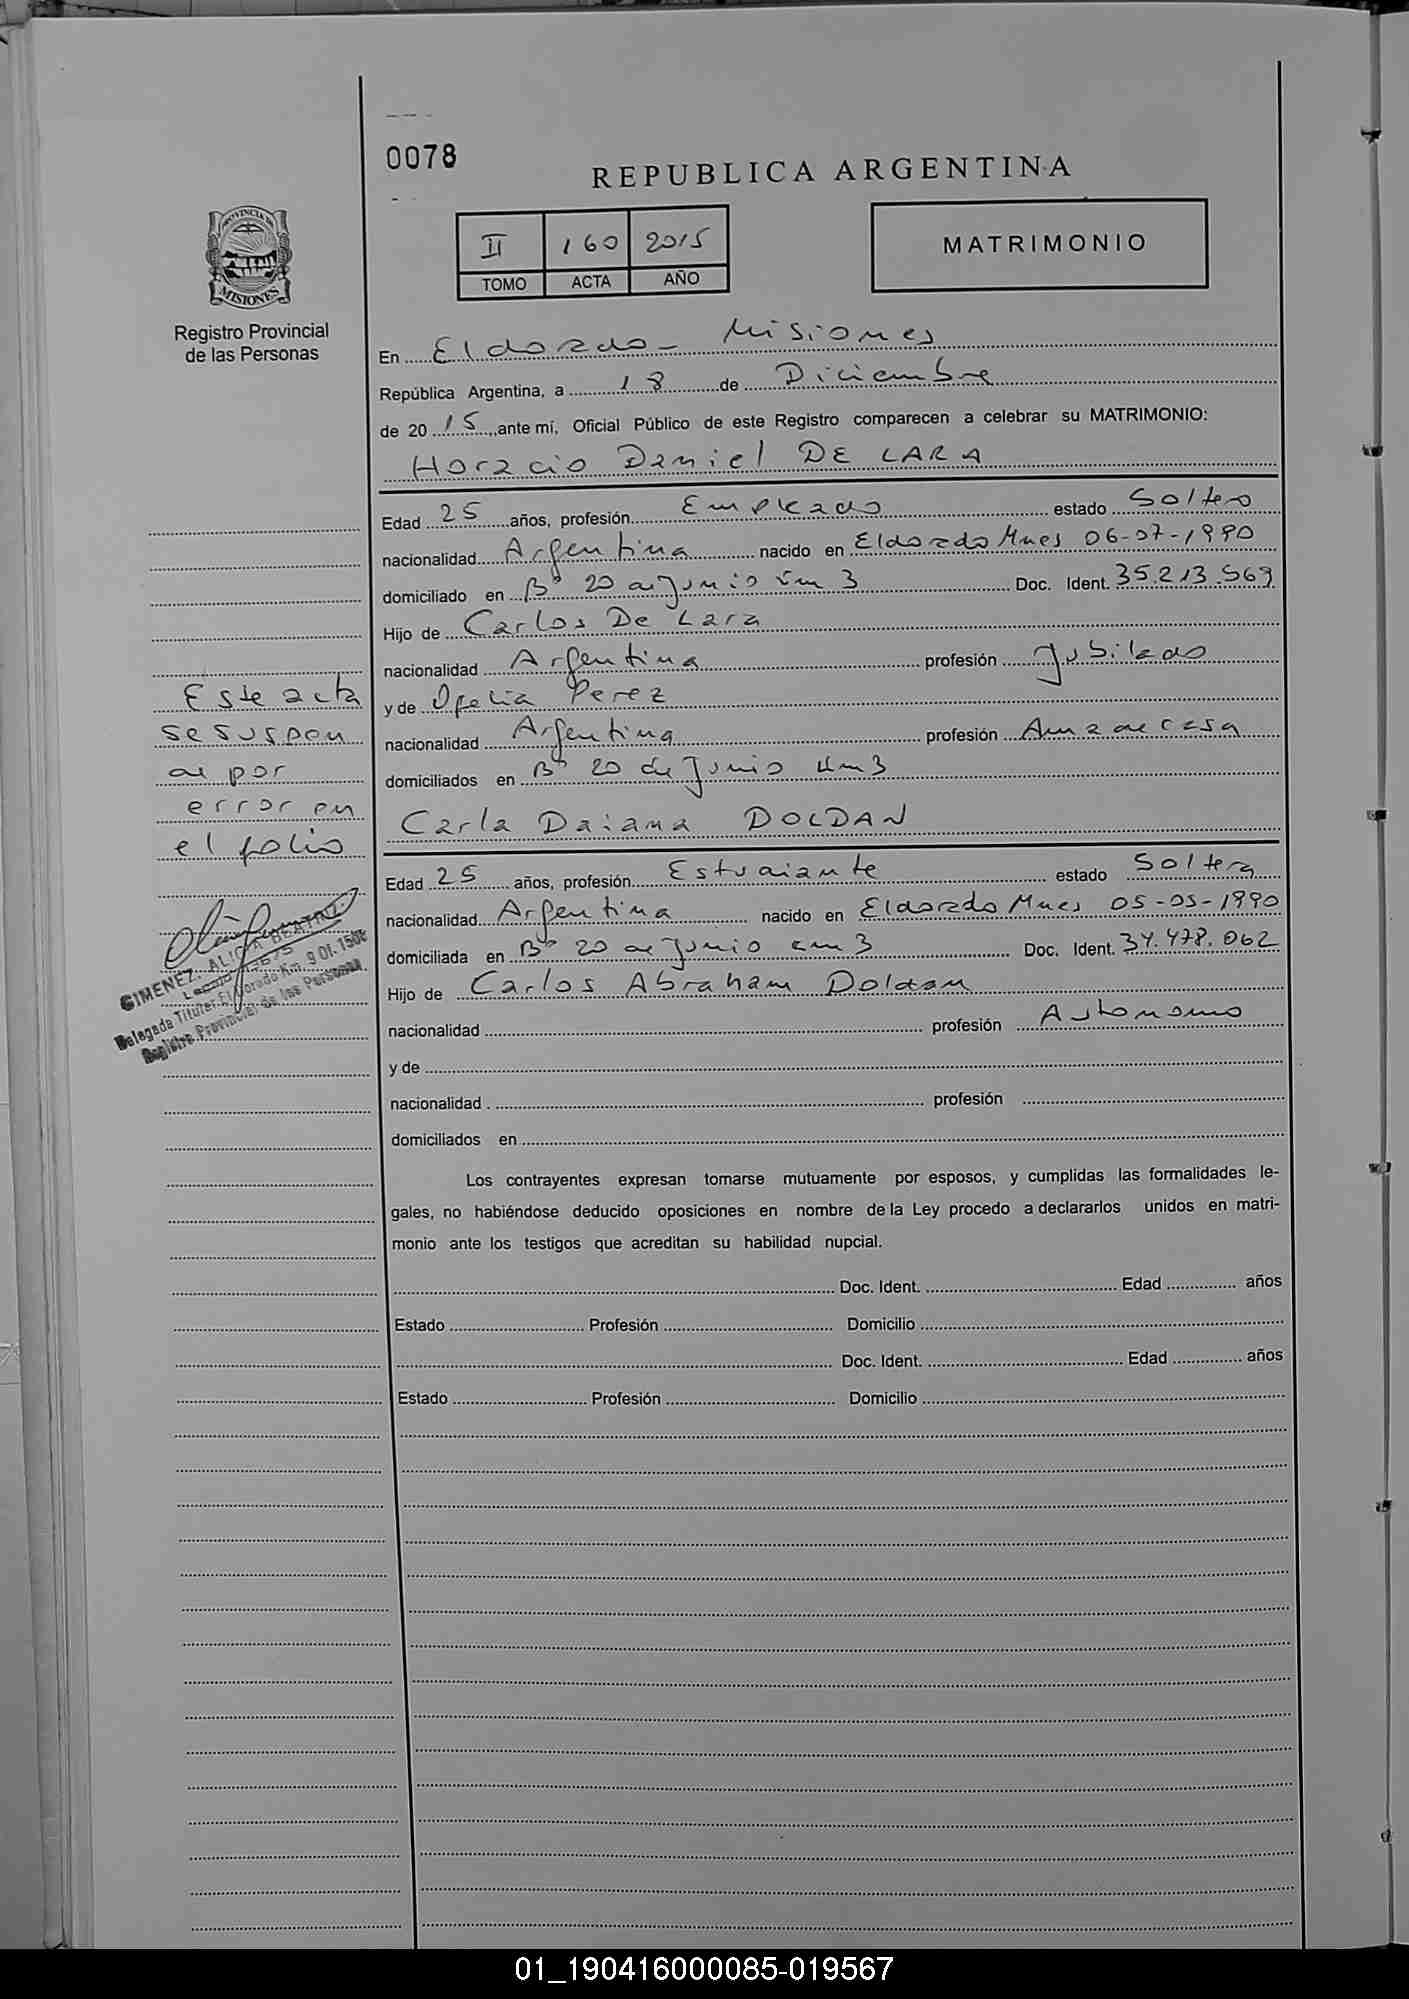 0078
REPUBLICA ARGENTINA
PROVINCIA DE
MISIONES
Registro Provincial
de las Personas
II 160 2015
TOMO ACTA AÑO
MATRIMONIO
En Eldorado - Misiones
República Argentina, a 18 de Diciembre
de 20 15 ante mí, Oficial Público de este Registro comparecen a celebrar su MATRIMONIO:
Horacio Daniel DE LARA
Edad 25 años, profesión Empleado estado Soltero
nacionalidad Argentina nacido en Eldorado Mnes 06-07-1990
domiciliado en Bº 20 de Junio km 3 Doc. Ident. 35.213.569
Hijo de Carlos De Lara
nacionalidad Argentina profesión Jubilado
y de Ofelia Perez
nacionalidad Argentina profesión Ama de casa
domiciliados en Bº 20 de Junio km 3
Carla Daiana DOLDAN
Edad 25 años, profesión Estudiante estado Soltera
nacionalidad Argentina nacido en Eldorado Mnes 05-05-1990
domiciliada en Bº 20 de Junio km 3 Doc. Ident. 34.478.062
Hijo de Carlos Abraham Doldan
nacionalidad profesión Autonomo
y de
nacionalidad profesión
domiciliados en
Este acta
se suspen
de por
error en
el folio
GIMENEZ, ALICIA BEATRIZ
Legajo
Delegada Titular Eldorado Km. 9 Of. 1508
Registro Provincial de las Personas
Los contrayentes expresan tomarse mutuamente por esposos, y cumplidas las formalidades le-
gales, no habiéndose deducido oposiciones en nombre de la Ley procedo a declararlos unidos en matri-
monio ante los testigos que acreditan su habilidad nupcial.
Doc. Ident. Edad años
Estado Profesión Domicilio
Doc. Ident. Edad años
Estado Profesión Domicilio
01_190416000085-019567